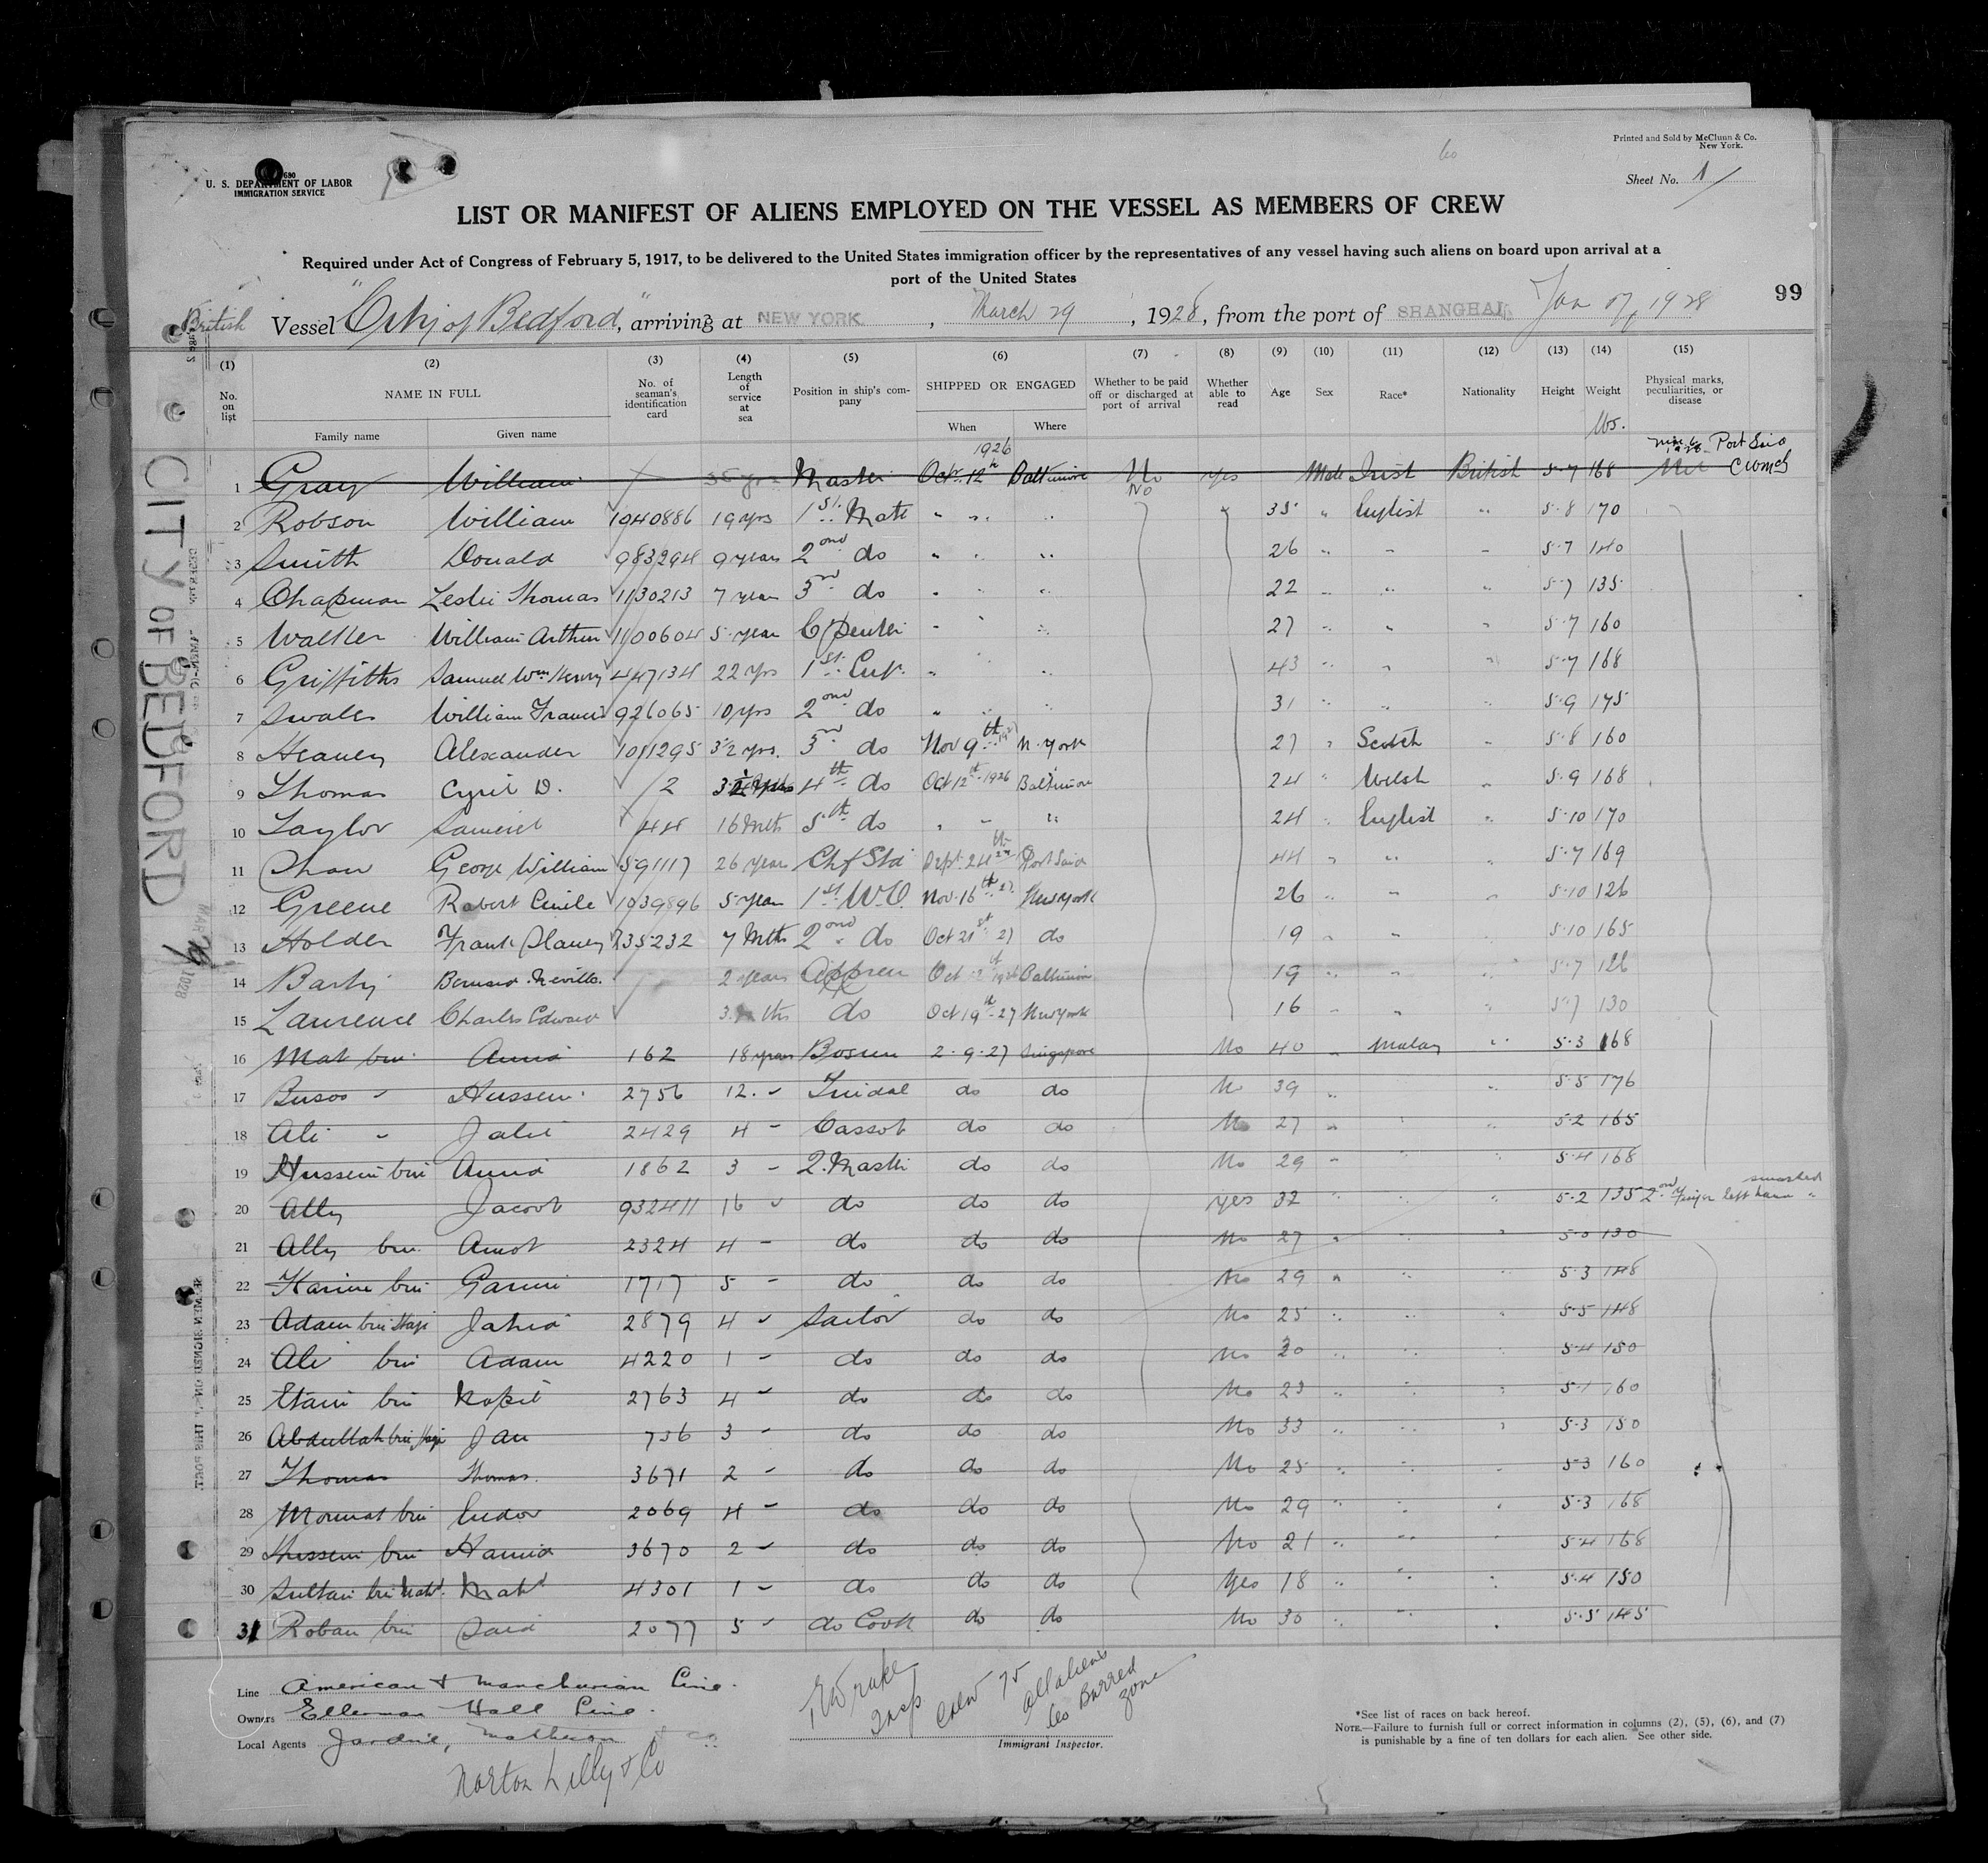 Printed and Sold by McClunn & Co.
New York.
60
680
U. S. DEPARTMENT OF LABOR
IMMIGRATION SERVICE
Sheet No. 1
LIST OR MANIFEST OF ALIENS EMPLOYED ON THE VESSEL AS MEMBERS OF CREW
Required under Act of Congress of February 5, 1917, to be delivered to the United States immigration officer by the representatives of any vessel having such aliens on board upon arrival at a
port of the United States
99
British Vessel "City of Bedford", arriving at NEW YORK, March 29, 1928, from the port of SHANGHAI Jan 1928
(1) (2) (3) (4) (5) (6) (7) (8) (9) (10) (11) (12) (13) (14) (15)
No. on list NAME IN FULL No. of seaman's identification card Length of service at sea Position in ship's company SHIPPED OR ENGAGED Whether to be paid off or discharged at port of arrival Whether able to read Age Sex Race* Nationality Height Weight Physical marks, peculiarities, or disease
Family name Given name When Where lbs.
1926 Port Said
1 Gray William Master Oct. 12th Baltimore No yes Male Irish British 5-7 168
No
2 Robson William 1040886 19 yrs 1st Mate " " " 35 " English " 5-8 170
3 Smith Donald 983294 9 years 2nd do " " " 26 " " " 5-7 140
4 Chapman Leslie Thomas 1130213 7 year 3rd do " " " 22 " " " 5-7 135
5 Walker William Arthur 1100604 5 year C/penter " " " 27 " " " 5-7 160
6 Griffiths Samuel Wm Henry 447134 22 yrs 1st Eng. " " " 43 " " " 5-7 168
7 Swales William Francis 926065 10 yrs 2nd do " " " 31 " " " 5-9 175
8 Heaney Alexander 1011295 3½ yrs. 3rd do Nov 9th N. York 27 " Scotch " 5-8 160
9 Thomas Cyril D. 2 4th do Oct 12th 1926 Baltimore 24 " Welsh " 5-9 168
10 Taylor 44 16 Mths 5th do " " " 24 " English " 5-10 170
11 Shaw George William 591117 26 year Chf Std Sept. 24th Port Said 44 " " " 5-7 169
12 Greene Robert 1039896 5 year 1st W.O Nov. 16th 27 New York 26 " " " 5-10 126
13 Holder Frank 35232 7 Mths 2nd do Oct 21st 27 do 19 " " " 5-10 165
14 Bernard Neville. 2 years Appren Oct 1926 Baltimore 19 " " " 5-7 126
15 Lawrence Charles Edward 3 mths do Oct 19th 27 New York 16 " " " 5-7 130
16 Mat bin 162 18 years Bosun 2-9-27 Singapore No 40 " Malay " 5-3 168
17 Hussein 2756 12 " Tindal do do No 39 " " 5-5 176
18 Ali " 2429 4 " Cassob do do No 27 " " " 5-2 165
19 Hussein bin 1862 3 " Q. Master do do No 29 " " " 5-4 168
20 Ally Jacob 932411 16 " do do do yes 32 " " " 5-2 135 2nd finger left hand smashed
21 Ally bin 2324 4 " do do do No 27 " " " 5-0 130
22 Karim bin 1717 5 " do do do No 29 " " " 5-3 148
23 Adam bin Haji 2879 4 " Sailor do do No 25 " " " 5-5 148
24 Ali bin Adam 4220 1 " do do do No 30 " " " 5-4 150
25 bin 2763 4 " do do do No 23 " " " 5-1 160
26 Abdullah bin Haji Jan 736 3 " do do do No 33 " " " 5-3 150
27 Thomas Thomas. 3671 2 " do do do No 25 " " " 5-3 160
28 bin 2069 4 " do do do No 29 " " " 5-3 168
29 Hussein bin Hamid 3670 2 " do do do No 21 " " " 5-4 168
30 Sultan bin Mahd. Mahd 4301 1 " do do do Yes 18 " " " 5-4 150
31 bin Said 2077 5 " do Cook do do No 30 " " " 5-5 145
CITY OF BEDFORD
MAR 29 1928
Line American & Manchurian Line.
Owners Ellerman Hall Line.
Local Agents Jardine, Matheson & Co
Norton Lilly & Co
Drake
Insp.
Crew 75
all aliens
Barred
zone
Immigrant Inspector.
*See list of races on back hereof.
NOTE.—Failure to furnish full or correct information in columns (2), (5), (6), and (7)
is punishable by a fine of ten dollars for each alien. See other side.